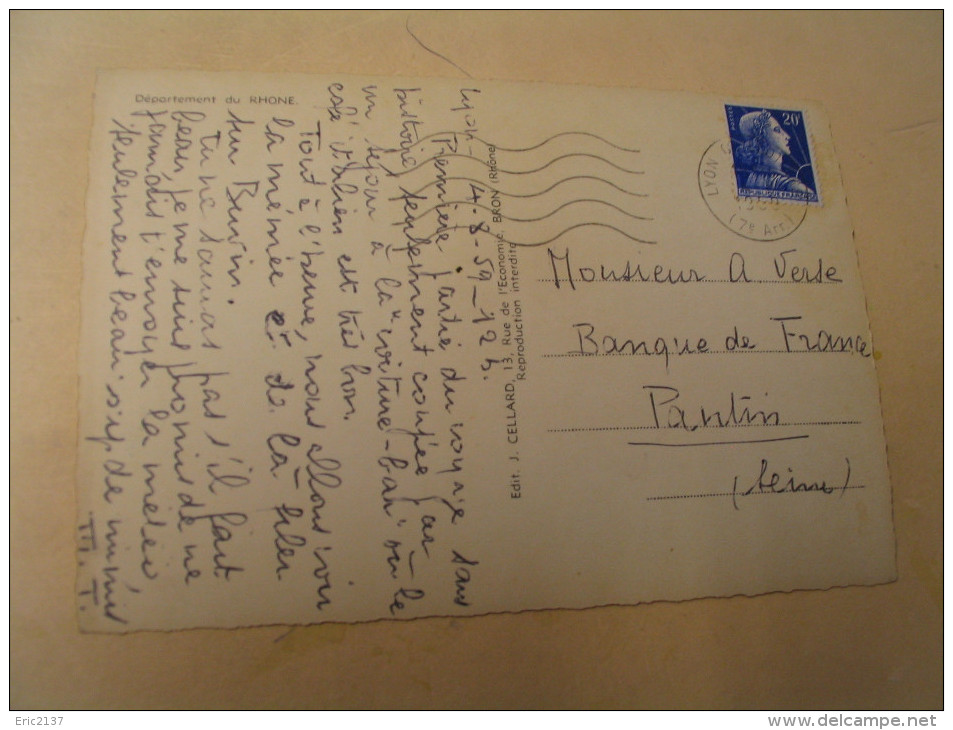 Département du RHONE.
Lyon - 4-8-59 - 12 h.
Première partie du voyage sans
histoire, seulement coupée par
un séjour à la "voiture-bar" où le
café italien est très bon.
Tout à l'heure, nous allons voir
la mémée et de là filer
sur Burin.
Tu ne sauras pas s'il fait
beau, je me suis promis de ne
jamais t'envoyer la météo
seulement beau.
Edit. J. CELLARD, 13, Rue de l'Economie, BRON (Rhône)
Reproduction interdite
20F
POSTES
REPUBLIQUE FRANÇAISE
LYON
(7e Arr.)
Monsieur A Verse
Banque de France
Pantin
(Seine)
Eric2137
delcampe.net